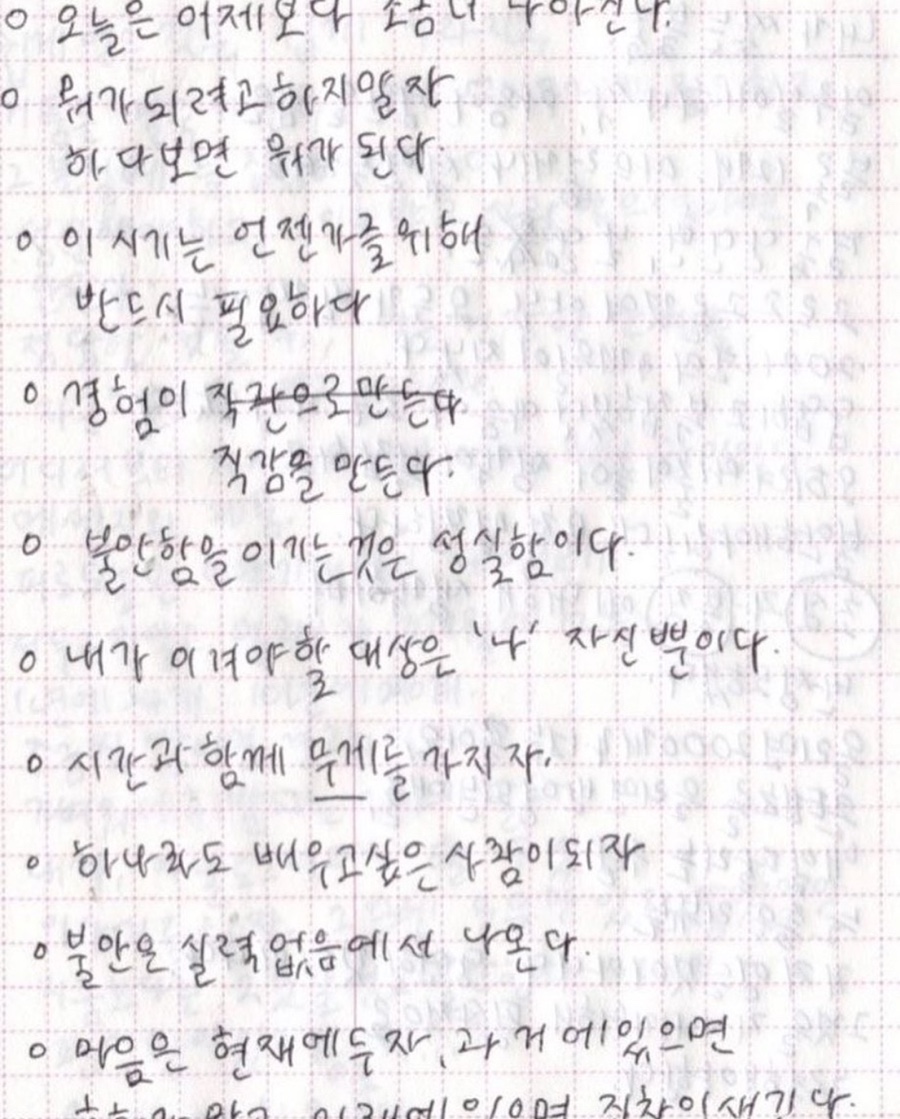 오늘은 어제보다 조금 더 나아진다.
뭐가 되려고 하지말자
하다보면 뭐가 된다.
이 시기는 언젠가를 위해
반드시 필요하다
경험이 직관으로 만든다
직감을 만든다.
불안함을 이기는 것은 성실함이다.
내가 이겨야할 대상은 '나' 자신뿐이다.
시간과 함께 무게를 가지자.
하나라도 배우고싶은 사람이되자
불안은 실력없음에서 나온다.
마음은 현재에두자, 과거에있으면
미래에 있으면 집착이 생기다.